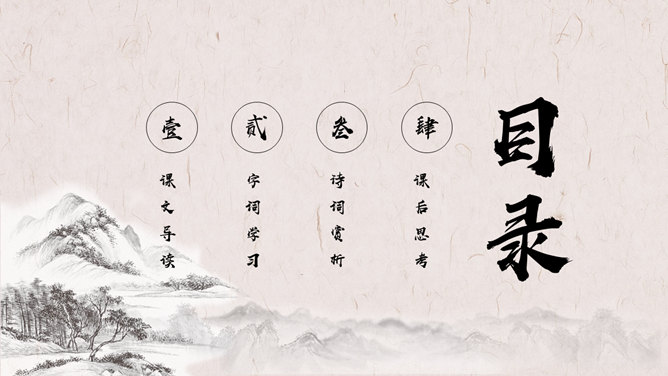 目录
壹
课文导读
贰
字词学习
叁
诗词赏析
肆
课后思考